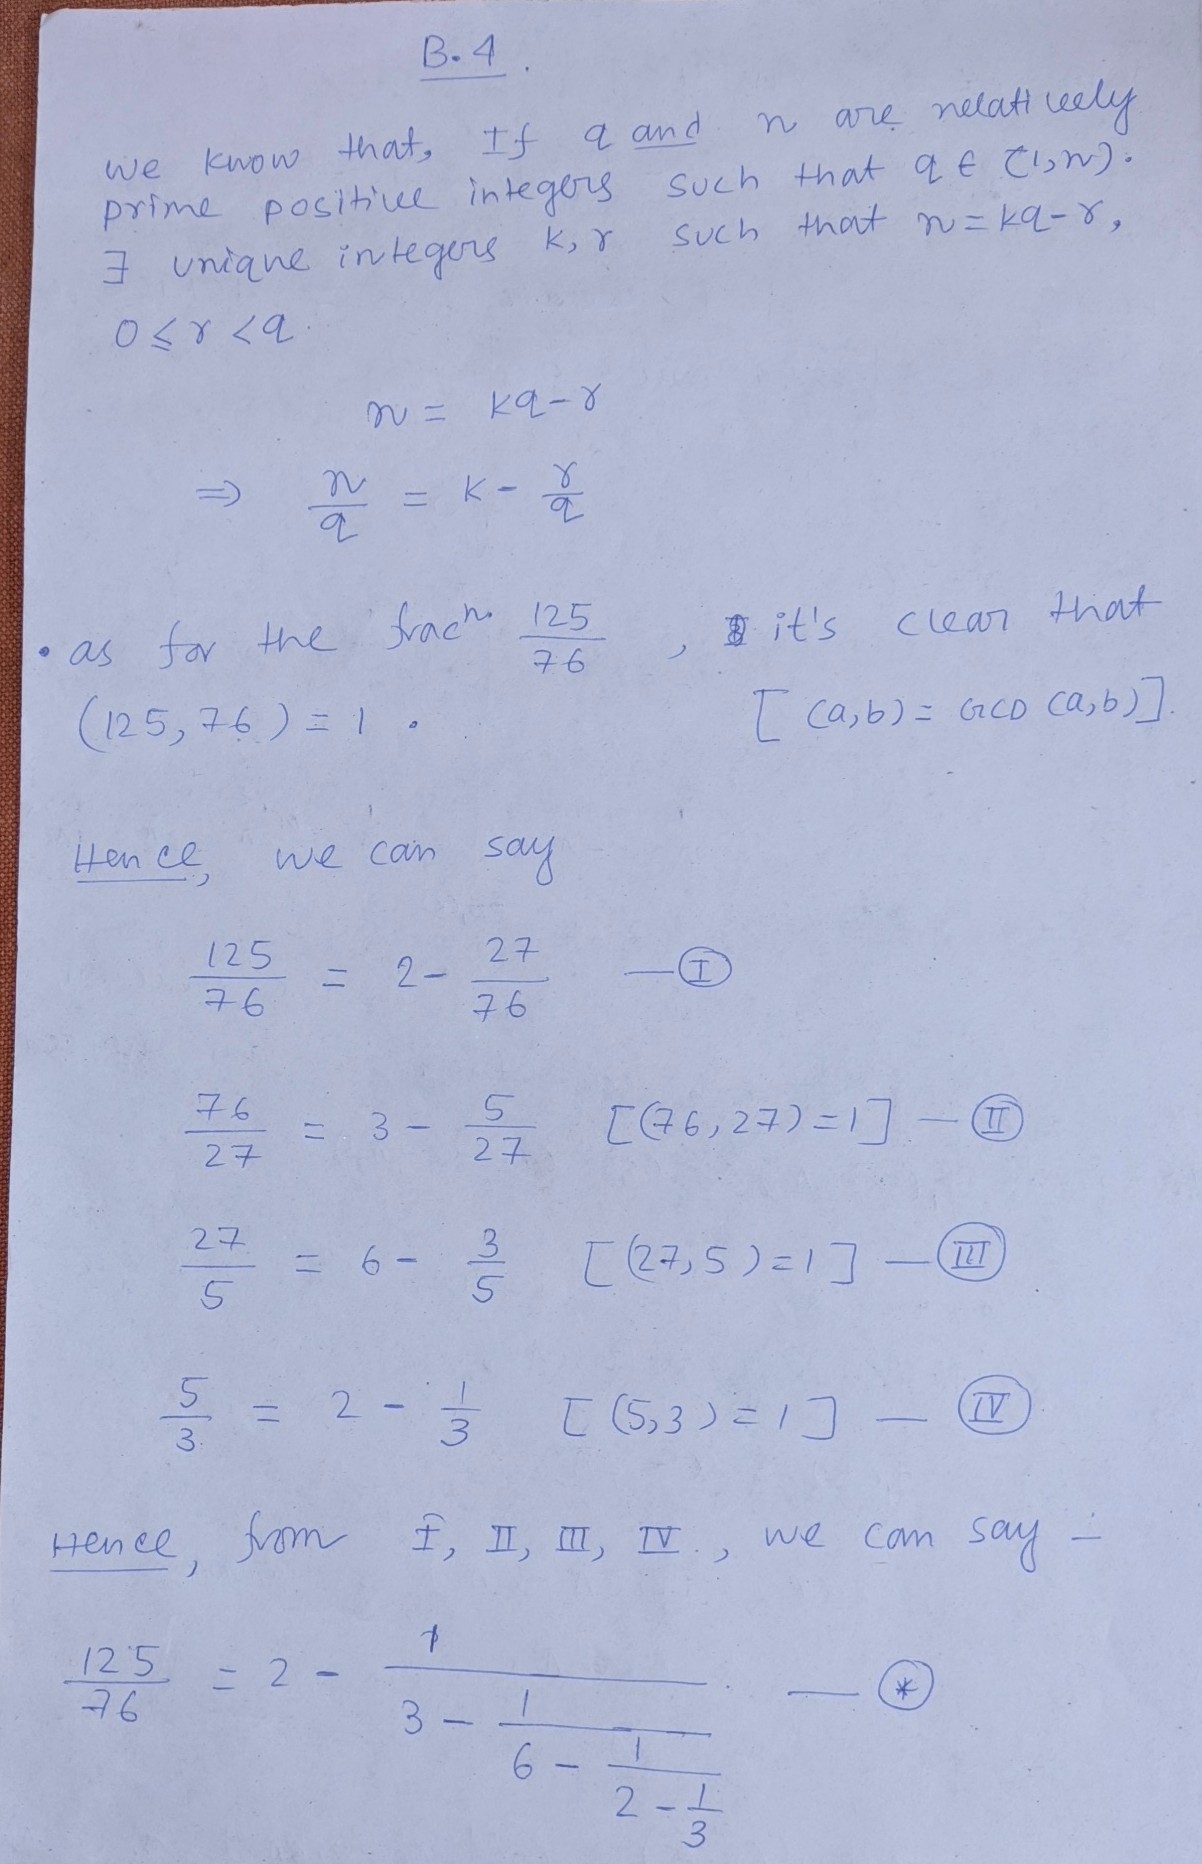 B.4.
we know that, If q and n are relatively
prime positive integers such that q ∈ (1,n).
∃ unique integers k, r such that n = kq - r,
0 ≤ r < q.
n = kq - r
⇒ n/q = k - r/q
• as for the fracn. 125/76, it's clear that
(125, 76) = 1. [(a,b) = GCD (a,b)].
Hence, we can say
125/76 = 2 - 27/76 — I
76/27 = 3 - 5/27 [(76,27)=1] — II
27/5 = 6 - 3/5 [(27,5)=1] — III
5/3 = 2 - 1/3 [(5,3)=1] — IV
Hence, from I, II, III, IV., we can say -
125/76 = 2 - 1/(3 - 1/(6 - 1/(2 - 1/3))) — *